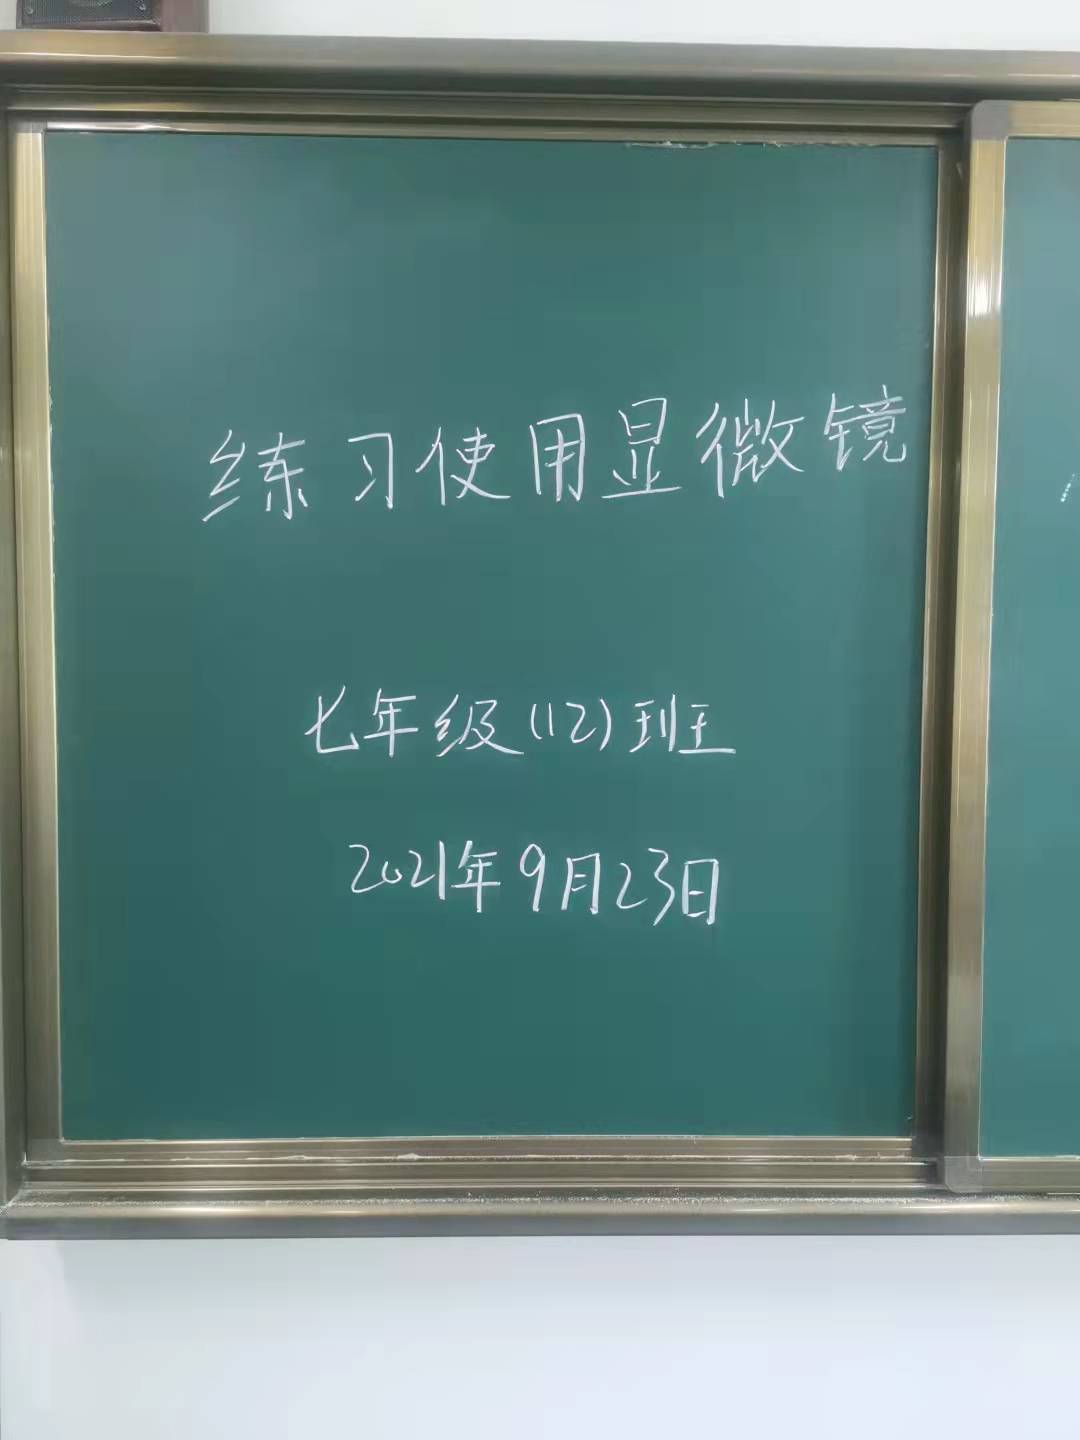 练习使用显微镜
七年级(12)班
2021年9月23日